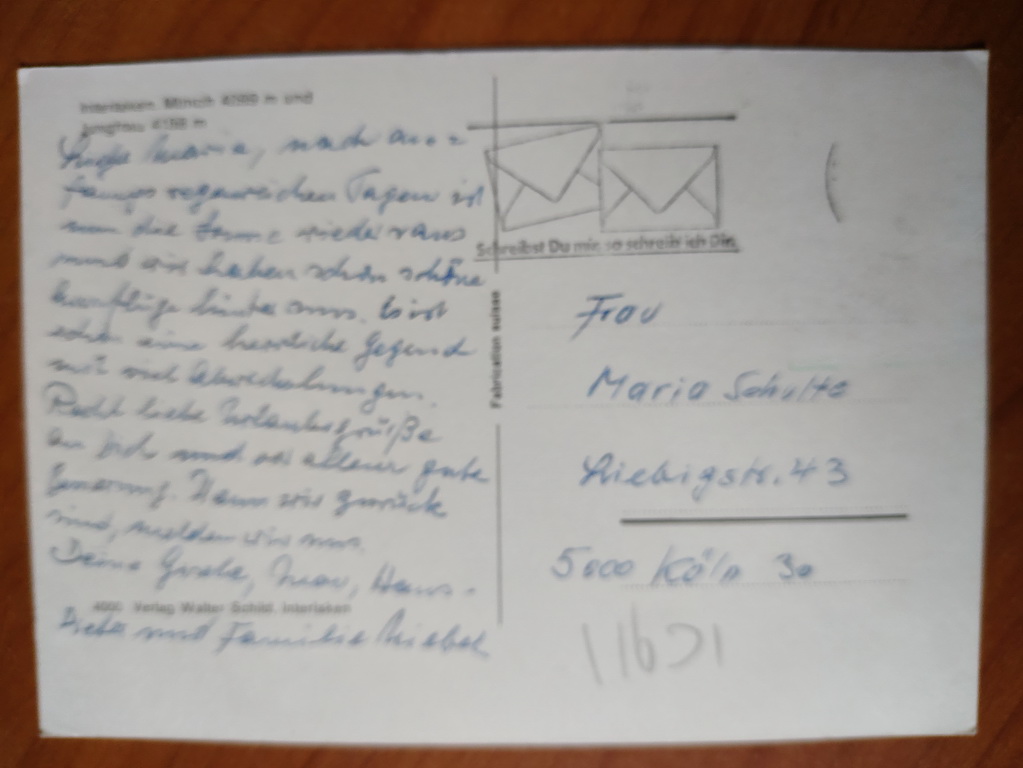 Interlaken. Mönch 4099 m und
Jungfrau 4158 m
Liebe Maria, nach an-
fangs regenreichen Tagen ist
nun die Sonne wieder raus
und wir haben schon schöne
Ausflüge hinter uns. Es ist
schon eine herrliche Gegend
mit viel Abwechslungen.
Recht liebe Urlaubsgrüße
an Dich und vor allem gute
Besserung. Wenn wir zurück
sind, melden wir uns.
Deine Grete, Max, Hans-
4000 Verlag Walter Schild, Interlaken
Dieter und Familie
Schreibst Du mir, so schreib ich Dir.
Fabrication suisse
Frau
Maria Schulte
Liebigstr. 43
5000 Köln 30